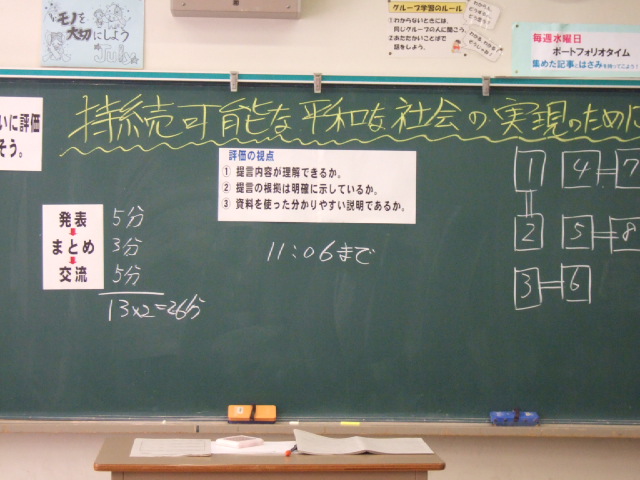 モノを
大切にしよう
グループ学習のルール
①わからないときには、
同じグループの人に聞こう。
②あたたかいことばで
話をしよう。
毎週水曜日
ポートフォリオタイム
集めた記事とはさみを持ってこよう!
いに評価
そう。
持続可能な平和な社会の実現のために
評価の視点
① 提言内容が理解できるか。
② 提言の根拠は明確に示しているか。
③ 資料を使った分かりやすい説明であるか。
発表 5分
まとめ 3分
交流 5分
13×2=26分
11:06まで
1 4 7
2 5 8
3 6